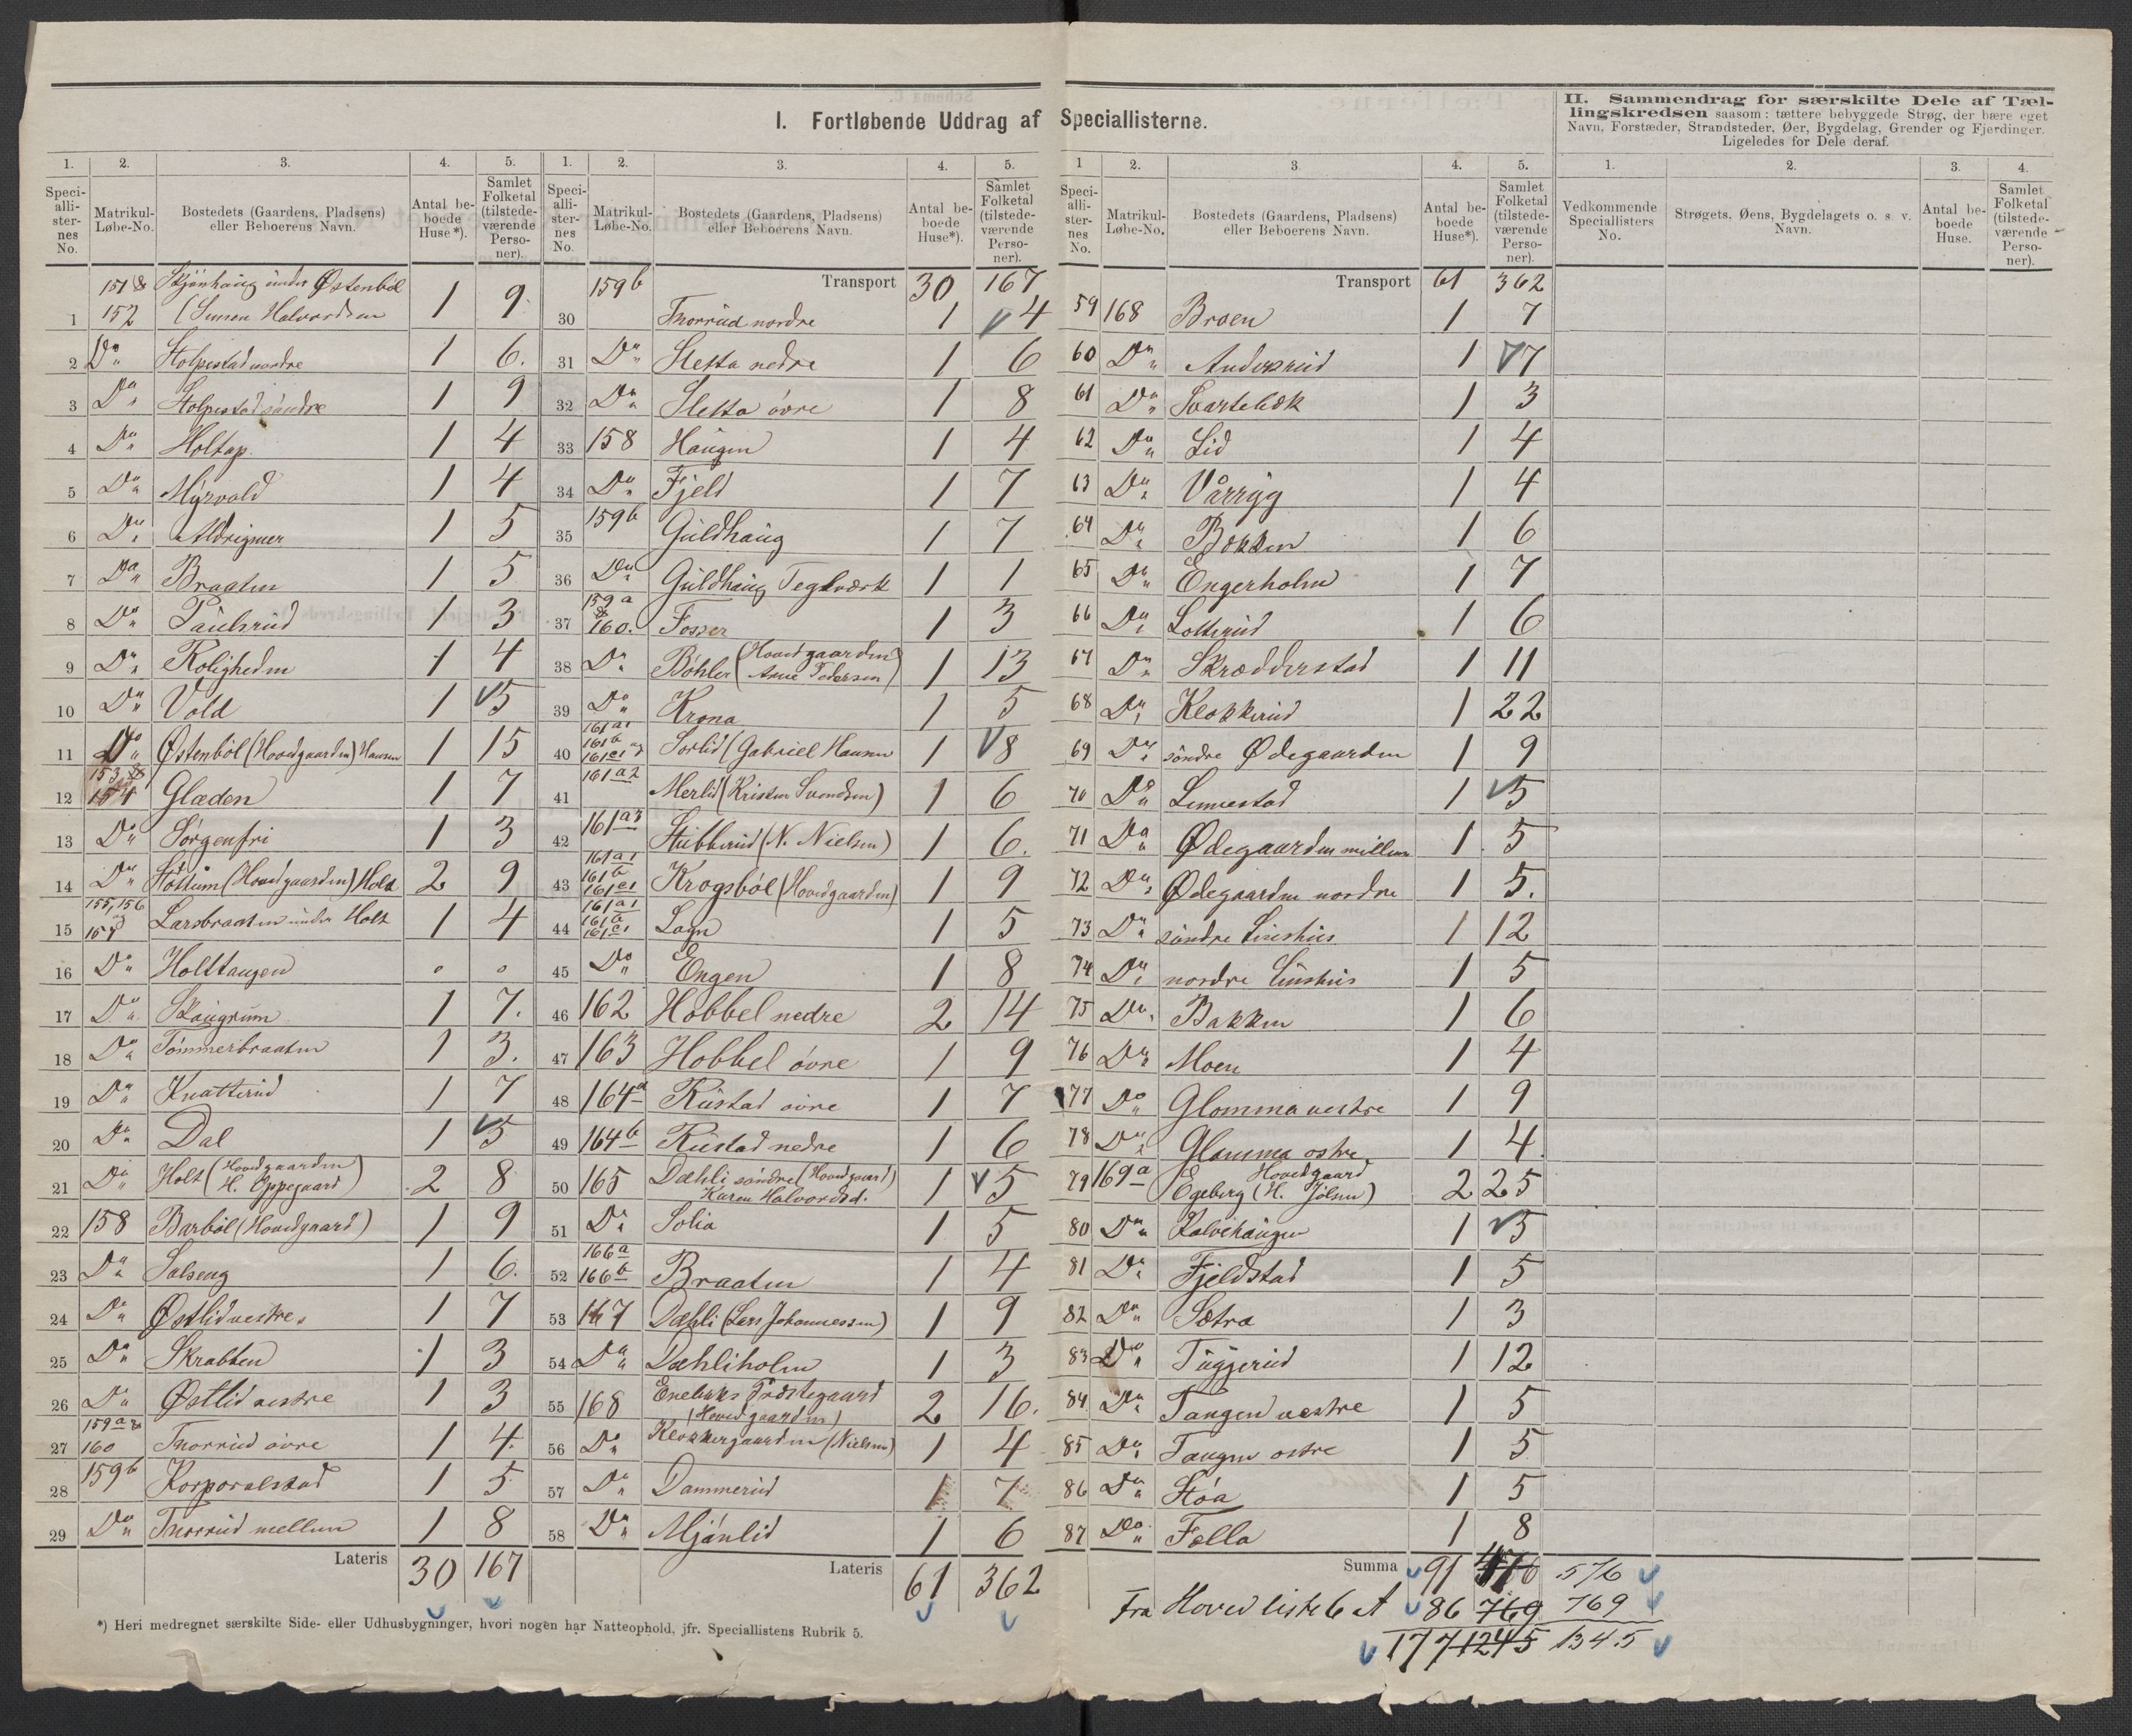 I. Fortløbende Uddrag af Speciallisterne.
II. Sammendrag for særskilte Dele af Tæl-
lingskredsen saasom: tættere bebyggede Strøg, der bære eget
Navn, Forstæder, Strandsteder, Øer, Bygdelag, Grender og Fjerdinger.
Ligeledes for Dele deraf.
1. 2. 3. 4. 5.
Speci-alli-ster-nes No. Matrikul-Løbe-No. Bostedets (Gaardens, Pladsens) eller Beboerens Navn. Antal be-boede Huse*). Samlet Folketal (tilstede-værende Perso-ner).
151 & Skjønhaug under Østenbøl
1 152 (Simen Halvordsen 1 9
2 Do Stolpestad nordre 1 6.
3 Do Stolpestad søndre 1 9
4 Do Holtap. 1 4
5 Do Myrvold 1 4
6 Do Aldrigmer 1 5
7 Do Braaten 1 5
8 Do Paulsrud 1 3
9 Do Roligheden 1 4
10 Do Vold 1 5
11 Do Østenbøl (Hovedgaarden) Hansen 1 15
153 &
12 154 Glæden 1 7
13 Do Sorgenfri 1 3
14 Do Stottum (Hovedgaarden) Holt 2 9
155, 156
15 157 Larsbraaten under Holt 1 4
16 Do Holttangen o o
17 Do Skaugrum 1 7.
18 Do Tømmerbraaten 1 3.
19 Do Knatterud 1 7
20 Do Dal 1 5
21 Do Holt (Hovedgaarden) H. Oppegaard) 2 8
22 158 Barbøl (Hovedgaard) 1 9
23 Do Solseng 1 6.
24 Do Østlid vestre. 1 7
25 Do Skrabben 1 3
26 Do Østlid vestre 1 3
159a &
27 160 Thorrud øvre 1 4.
28 159b Korporalstad 1 5
29 Do Thorrud mellem 1 8
Lateris 30 167
1. 2. 3. 4. 5.
Speci-alli-ster-nes No. Matrikul-Løbe-No. Bostedets (Gaardens, Pladsens) eller Beboerens Navn. Antal be-boede Huse*). Samlet Folketal (tilstede-værende Perso-ner).
159b Transport 30 167
30 Thorrud nordre 1 4
31 Do Sletta nedre 1 6
32 Do Sletta øvre 1 8
33 158 Haugen 1 4
34 Do Fjeld 1 7
35 159b Guldhaug 1 7
36 Do Guldhaug Teglværk 1 1
159a &
37 160. Fosser 1 3
38 Do Bøhler (Hovedgaarden) Arne Pedersen) 1 13
39 Do Krona 1 5
161a1
161b
40 161c1 Sorlid (Gabriel Hansen 1 8
41 161a2 Merlid (Kristen Svendsen) 1 6
42 161a3 Stubberud (N. Nielsen) 1 6.
161a1
161b
43 161c1 Krogsbøl (Hovedgaarden) 1 9
161a1
161b
44 161c1 Logn 1 5
45 Do Engen 1 8
46 162 Hobbel nedre 2 14
47 163 Hobbel øvre 1 9
48 164a Rustad øvre 1 7
49 164b Rustad nedre 1 6
50 165 Dæhli søndre (Hovedgaard) Karen Halvordsd. 1 5
51 Do Solia 1 5
166a
52 166b Braaten 1 4
53 167 Dæhli (Lars Johannessen) 1 9
54 Do Dæhliholm 1 3
55 168 Enebaks Præstegaard (Hovedgaarden) 2 16.
56 Do Klokkergaarden (Nielsen) 1 4
57 Do Dammerud 1 7
58 Do Mjønlid 1 6
Lateris 61 362
*) Heri medregnet særskilte Side- eller Udhusbygninger, hvori nogen har Natteophold, jfr. Speciallistens Rubrik 5.
1 2. 3. 4. 5.
Speci-alli-ster-nes No. Matrikul-Løbe-No. Bostedets (Gaardens, Pladsens) eller Beboerens Navn. Antal be-boede Huse*). Samlet Folketal (tilstede-værende Perso-ner).
Transport 61 362
59 168 Broen 1 7
60 Do Anderud 1 7
61 Do Svartebæk 1 3
62 Do Lid 1 4
63 Do Vårryg 1 4
64 Do Bækken 1 6
65 Do Engerholm 1 7
66 Do Lotterud 1 6
67 Do Skrædderstad 1 11
68 Do Klokkerud 1 22
69 Do søndre Ødegaarden 1 9
70 Do Linnestad 1 5
71 Do Ødegaarden mellem 1 5
72 Do Ødegaarden nordre 1 5.
73 Do søndre Liushus 1 12
74 Do nordre Liushus 1 5
75 Do Bakken 1 6
76 Do Moen 1 4
77 Do Glomma vestre 1 9
78 Do Glomma østre. 1 4
79 169a Egeberg (Hovedgaard H. Jølsen) 2 25
80 Do Kalvehaugen 1 5
81 Do Fjeldstad 1 5
82 Do Sætra 1 3
83 Do Tuggerud 1 12
84 Do Tangen vestre 1 5
85 Do Tangen østre 1 5
86 Do Støa 1 5
87 Do Fælla 1 8
Summa 91 576
Fra Hovedliste 6 A 86 769 769
177 1245 1345
1. 2. 3. 4.
Vedkommende Speciallisters No. Strøgets, Øens, Bygdelagets o. s. v. Navn. Antal be-boede Huse. Samlet Folketal (tilstede-værende Perso-ner).